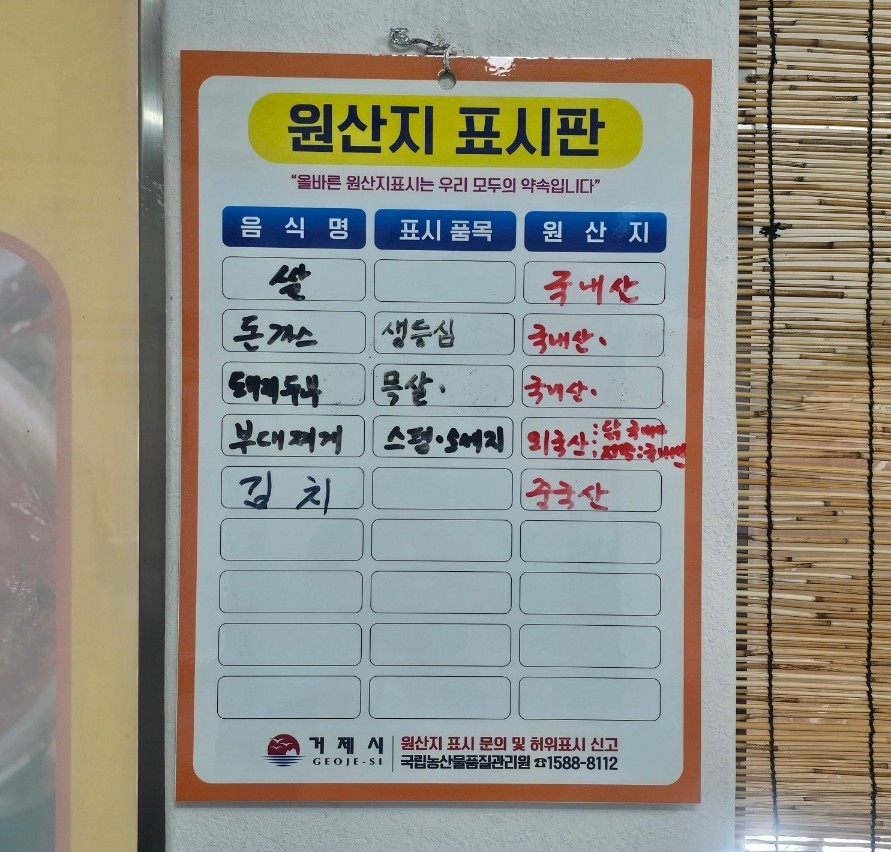 원산지 표시판
“올바른 원산지표시는 우리 모두의 약속입니다”
음식명 표시 품목 원산지
쌀 국내산
돈까스 생등심 국내산.
두부 목살. 국내산.
부대찌게 스팸.소세지 외국산: 닭:국내산
김치 중국산
거제시 GEOJE-SI
원산지 표시 문의 및 허위표시 신고
국립농산물품질관리원 ☎1588-8112